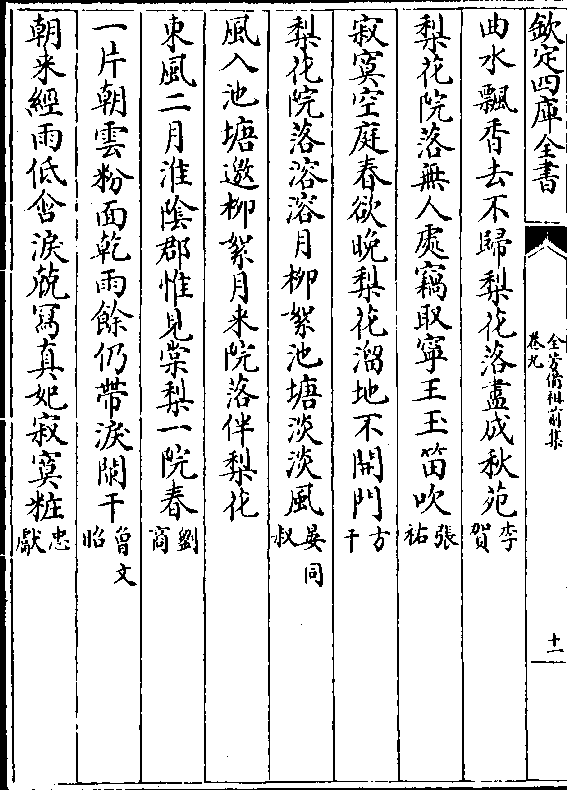 欽定四庫全書
全芳備祖前集
卷九
十一
曲水飄香去不歸梨花落盡成秋苑李賀
梨花院落無人處竊取寧王玉笛吹張祐
寂寞空庭春欲晚梨花溜地不開門方干
梨花院落溶溶月柳絮池塘淡淡風晏同叔
風入池塘邀柳絮月来院落伴梨花
東風二月淮陰郡惟見棠梨一院春劉商
一片朝雲粉面乾雨餘仍帶淚闌干曾文昭
朝来經雨低含淚兢冩真妃寂寞粧忠獻